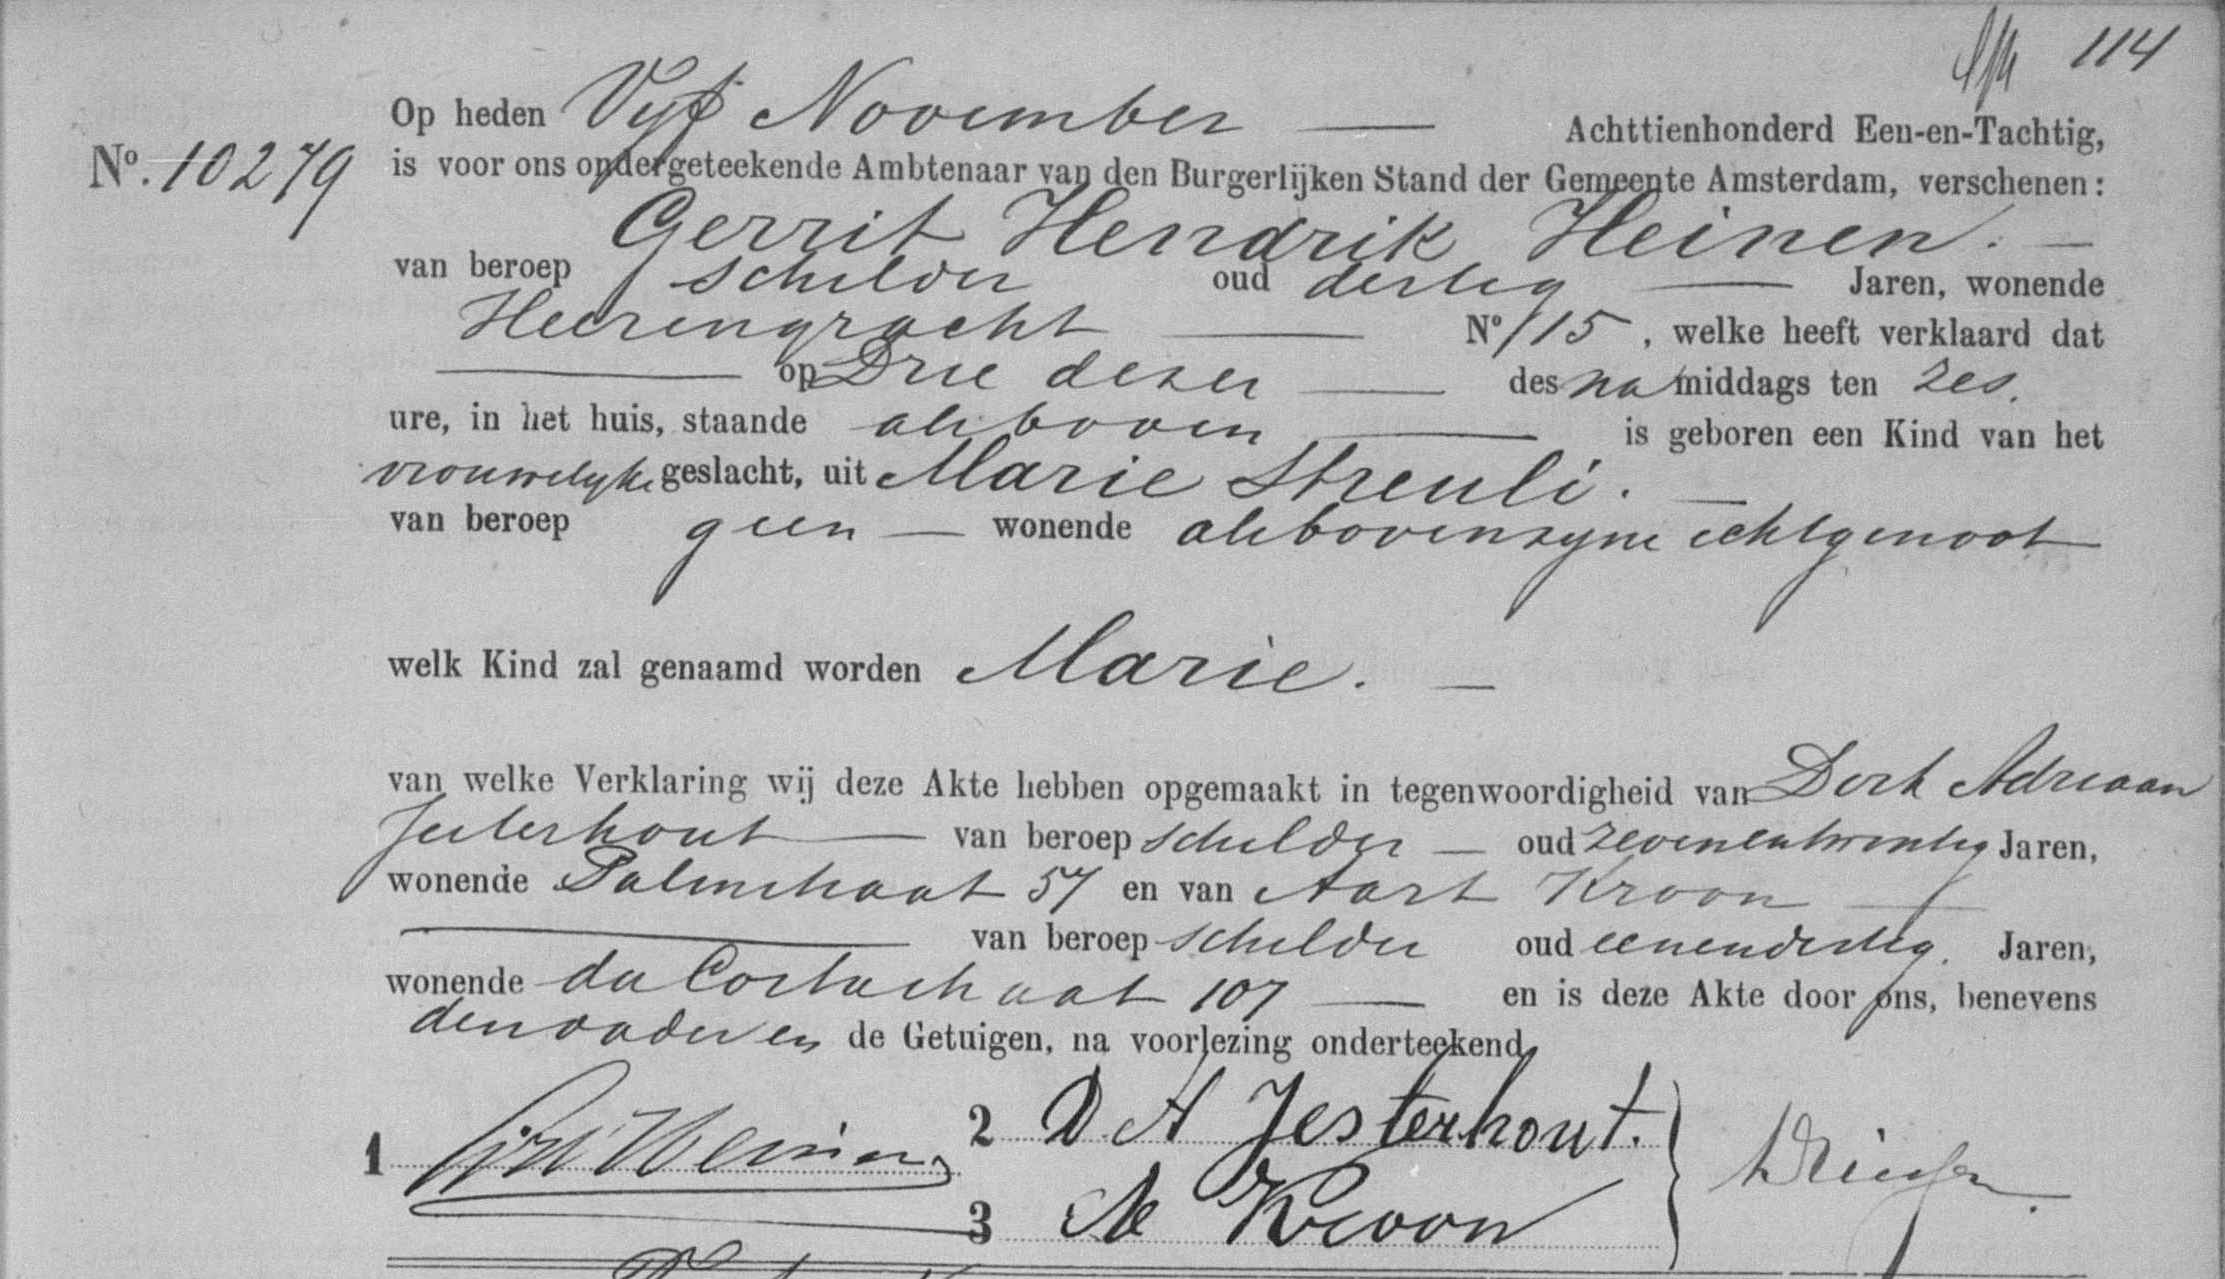 114
Op heden Vyf November — Achttienhonderd Een-en-Tachtig,
No. 10279 is voor ons ondergeteekende Ambtenaar van den Burgerlijken Stand der Gemeente Amsterdam, verschenen:
Gerrit Hendrik Heinen. —
van beroep schilder oud dertig — Jaren, wonende
Heerengracht — No 115, welke heeft verklaard dat
— op Drie dezer — des na middags ten zes.
ure, in het huis, staande als boven — is geboren een Kind van het
vrouwelyke geslacht, uit Marie Streuli. —
van beroep geen — wonende als boven zyne echtgenoot
welk Kind zal genaamd worden Marie. —
van welke Verklaring wij deze Akte hebben opgemaakt in tegenwoordigheid van Dirk Adriaan
Jesterhout — van beroep schilder — oud zevenentwintig Jaren,
wonende Palmstraat 57 en van Aart Kroon —
— van beroep schilder oud eenendertig. Jaren,
wonende da Costastraat 107 — en is deze Akte door ons, benevens
den vader en de Getuigen, na voorlezing onderteekend
1 Heinen 2 D. A Jesterhout.
3 A Kroon